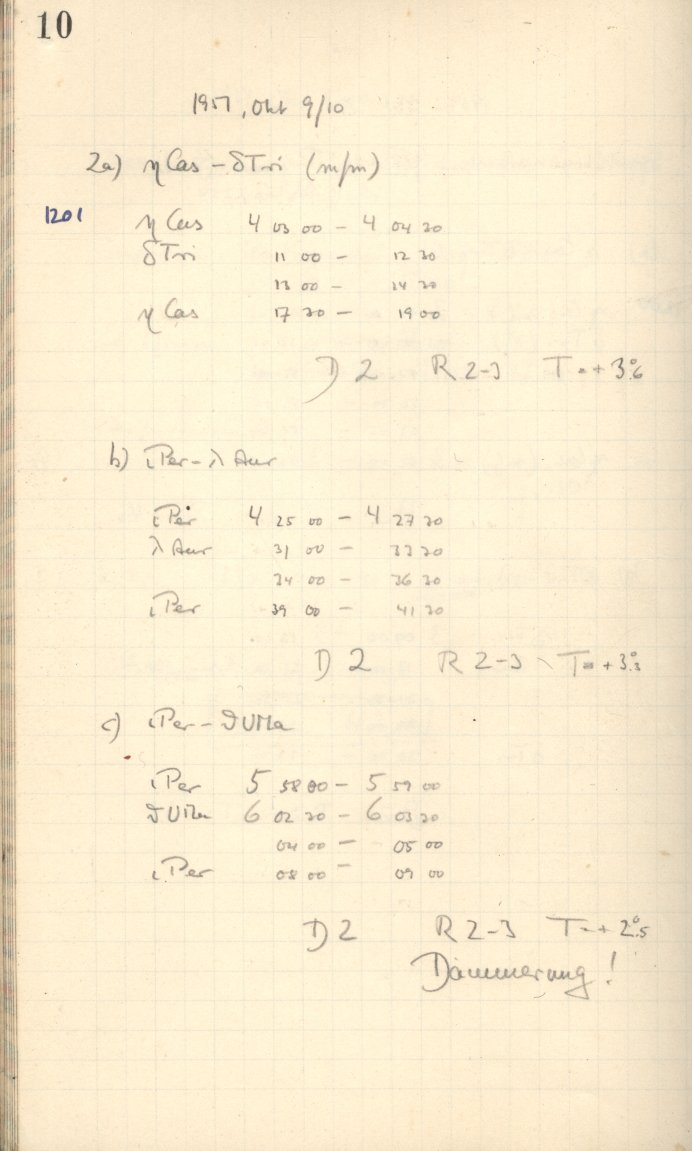 10
1957, Okt 9/10
2a) η Cas – δ Tri (m/m)
1201 η Cas 4 03 00 – 4 04 30
δ Tri 11 00 – 12 30
13 00 – 14 30
η Cas 17 30 – 19 00
D 2 R 2-3 T = + 3°.6
b) ι Per – λ Aur
ι Per 4 25 00 – 4 27 30
λ Aur 31 00 – 33 30
34 00 – 36 30
ι Per 39 00 – 41 30
D 2 R 2-3 T = + 3°.3
c) ι Per – ϑ UMa
ι Per 5 58 00 – 5 59 00
ϑ UMa 6 02 30 – 6 03 30
04 00 – 05 00
ι Per 08 00 – 09 00
D 2 R 2-3 T = + 2°.5
Dämmerung!